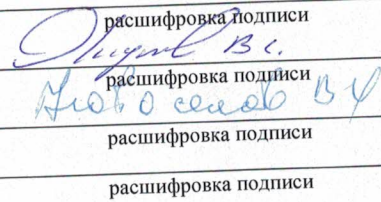 расшифровка подписи
В с.
расшифровка подписи
Новоселов В Ф
расшифровка подписи
расшифровка подписи